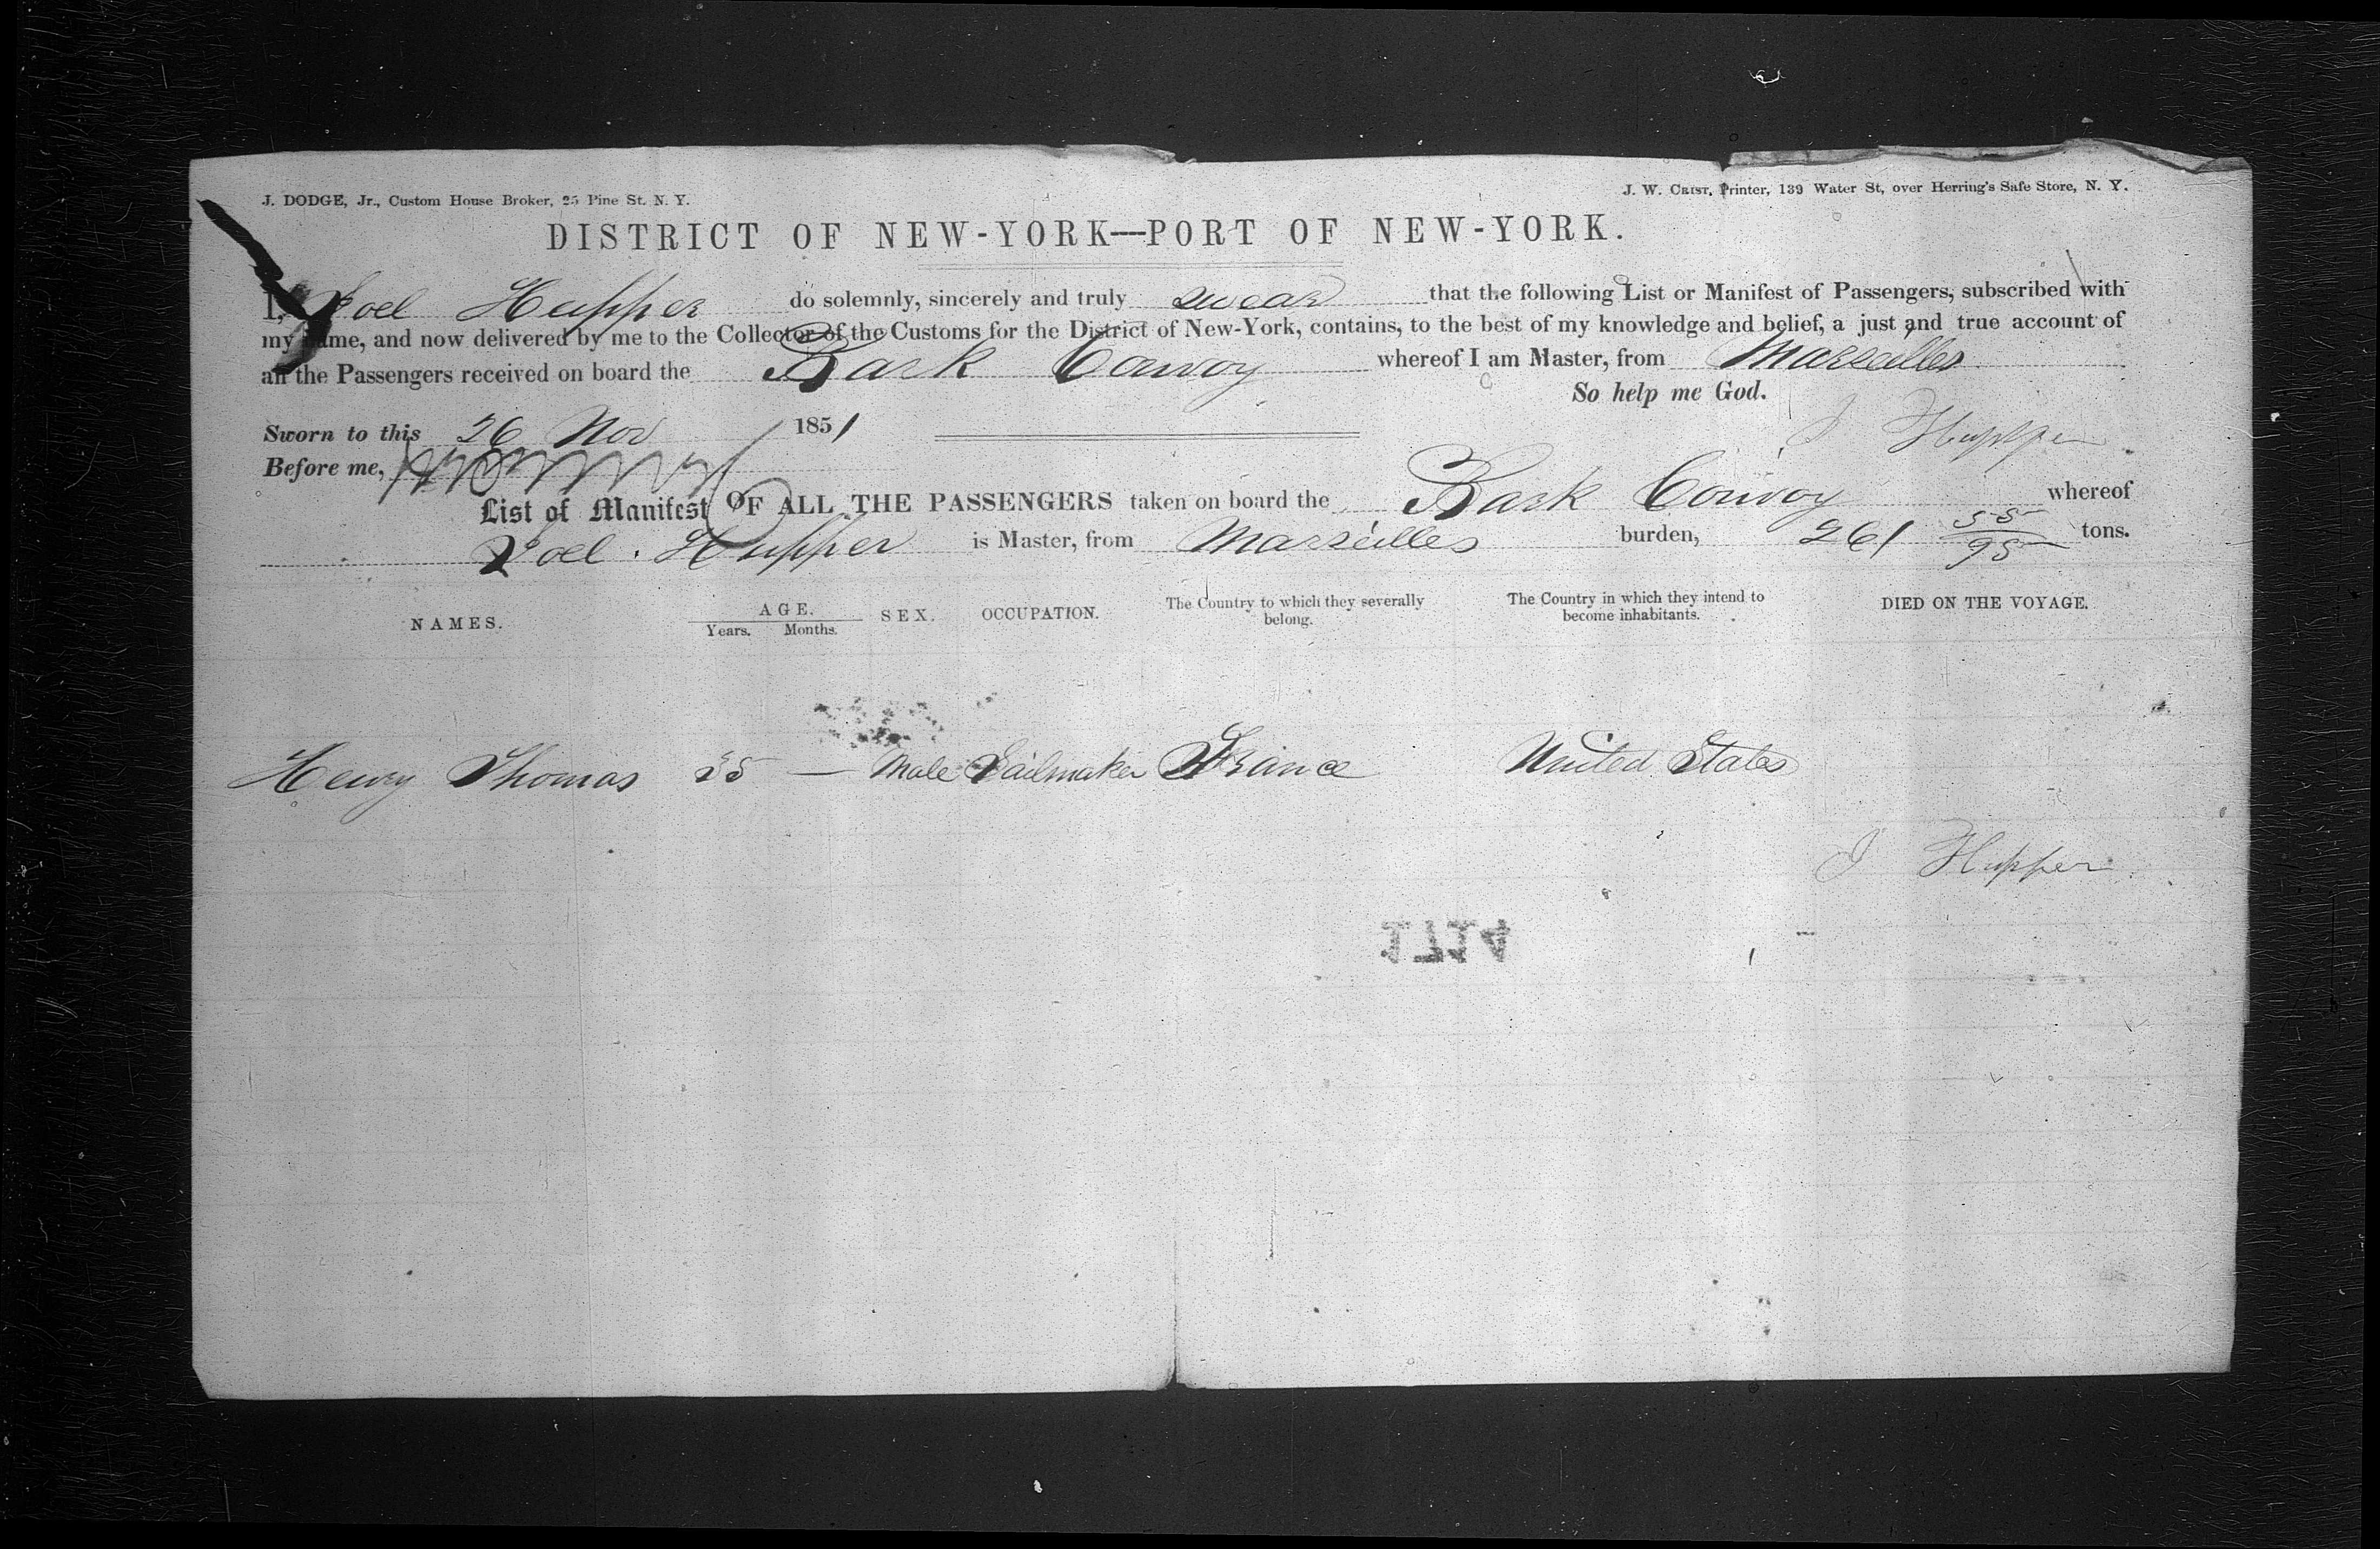 J. DODGE, Jr., Custom House Broker, 25 Pine St. N. Y.
J. W. CRIST, Printer, 139 Water St, over Herring's Safe Store, N. Y.
DISTRICT OF NEW-YORK—PORT OF NEW-YORK.
I, Joel Hupper do solemnly, sincerely and truly swear that the following List or Manifest of Passengers, subscribed with
my name, and now delivered by me to the Collector of the Customs for the District of New-York, contains, to the best of my knowledge and belief, a just and true account of
all the Passengers received on board the Bark Convoy whereof I am Master, from Marseilles
So help me God.
Sworn to this 26 Nov 1851
J Hupper
Before me,
List of Manifest OF ALL THE PASSENGERS taken on board the Bark Convoy whereof
Joel Hupper is Master, from Marseilles burden, 261 55/95 tons.
NAMES. AGE. Years. Months. SEX. OCCUPATION. The Country to which they severally belong. The Country in which they intend to become inhabitants. DIED ON THE VOYAGE.
Henry Thomas 35 — Male Sailmaker France United States
J Hupper
1714